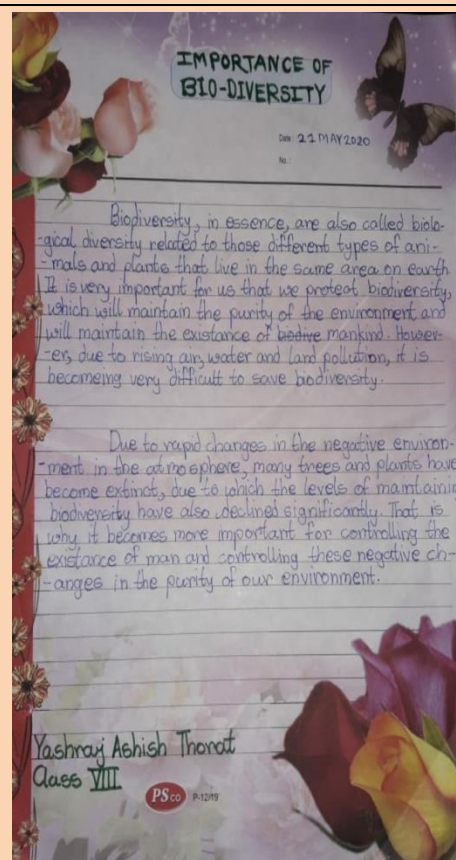 IMPORTANCE OF
BIO-DIVERSITY
Date: 22 MAY 2020
No.:
Biodiversity, in essence, are also called biolo-
-gical diversity related to those different types of ani-
-mals and plants that live in the same area on earth
It is very important for us that we protect biodiversity,
which will maintain the purity of the environment and
will maintain the existance of biodive mankind. Howev-
-er, due to rising air, water and land pollution, it is
becomeing very difficult to save biodiversity.
Due to rapid changes in the negative environ-
-ment in the atmosphere, many trees and plants have
become extinct, due to which the levels of maintainin
biodiversity have also declined significantly. That is
why it becomes more important for controlling the
existance of man and controlling these negative ch-
-anges in the purity of our environment.
Yashraj Ashish Thorat
Class VIII
PS co P-12/19